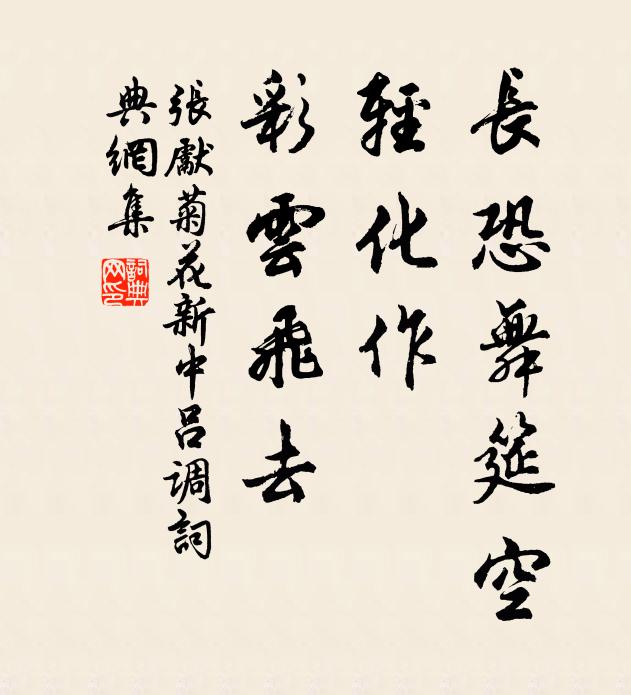 長恐舞筵空
輕化作
彩雲飛去
張獻菊花新中呂调詞
典網集
詞典
网印